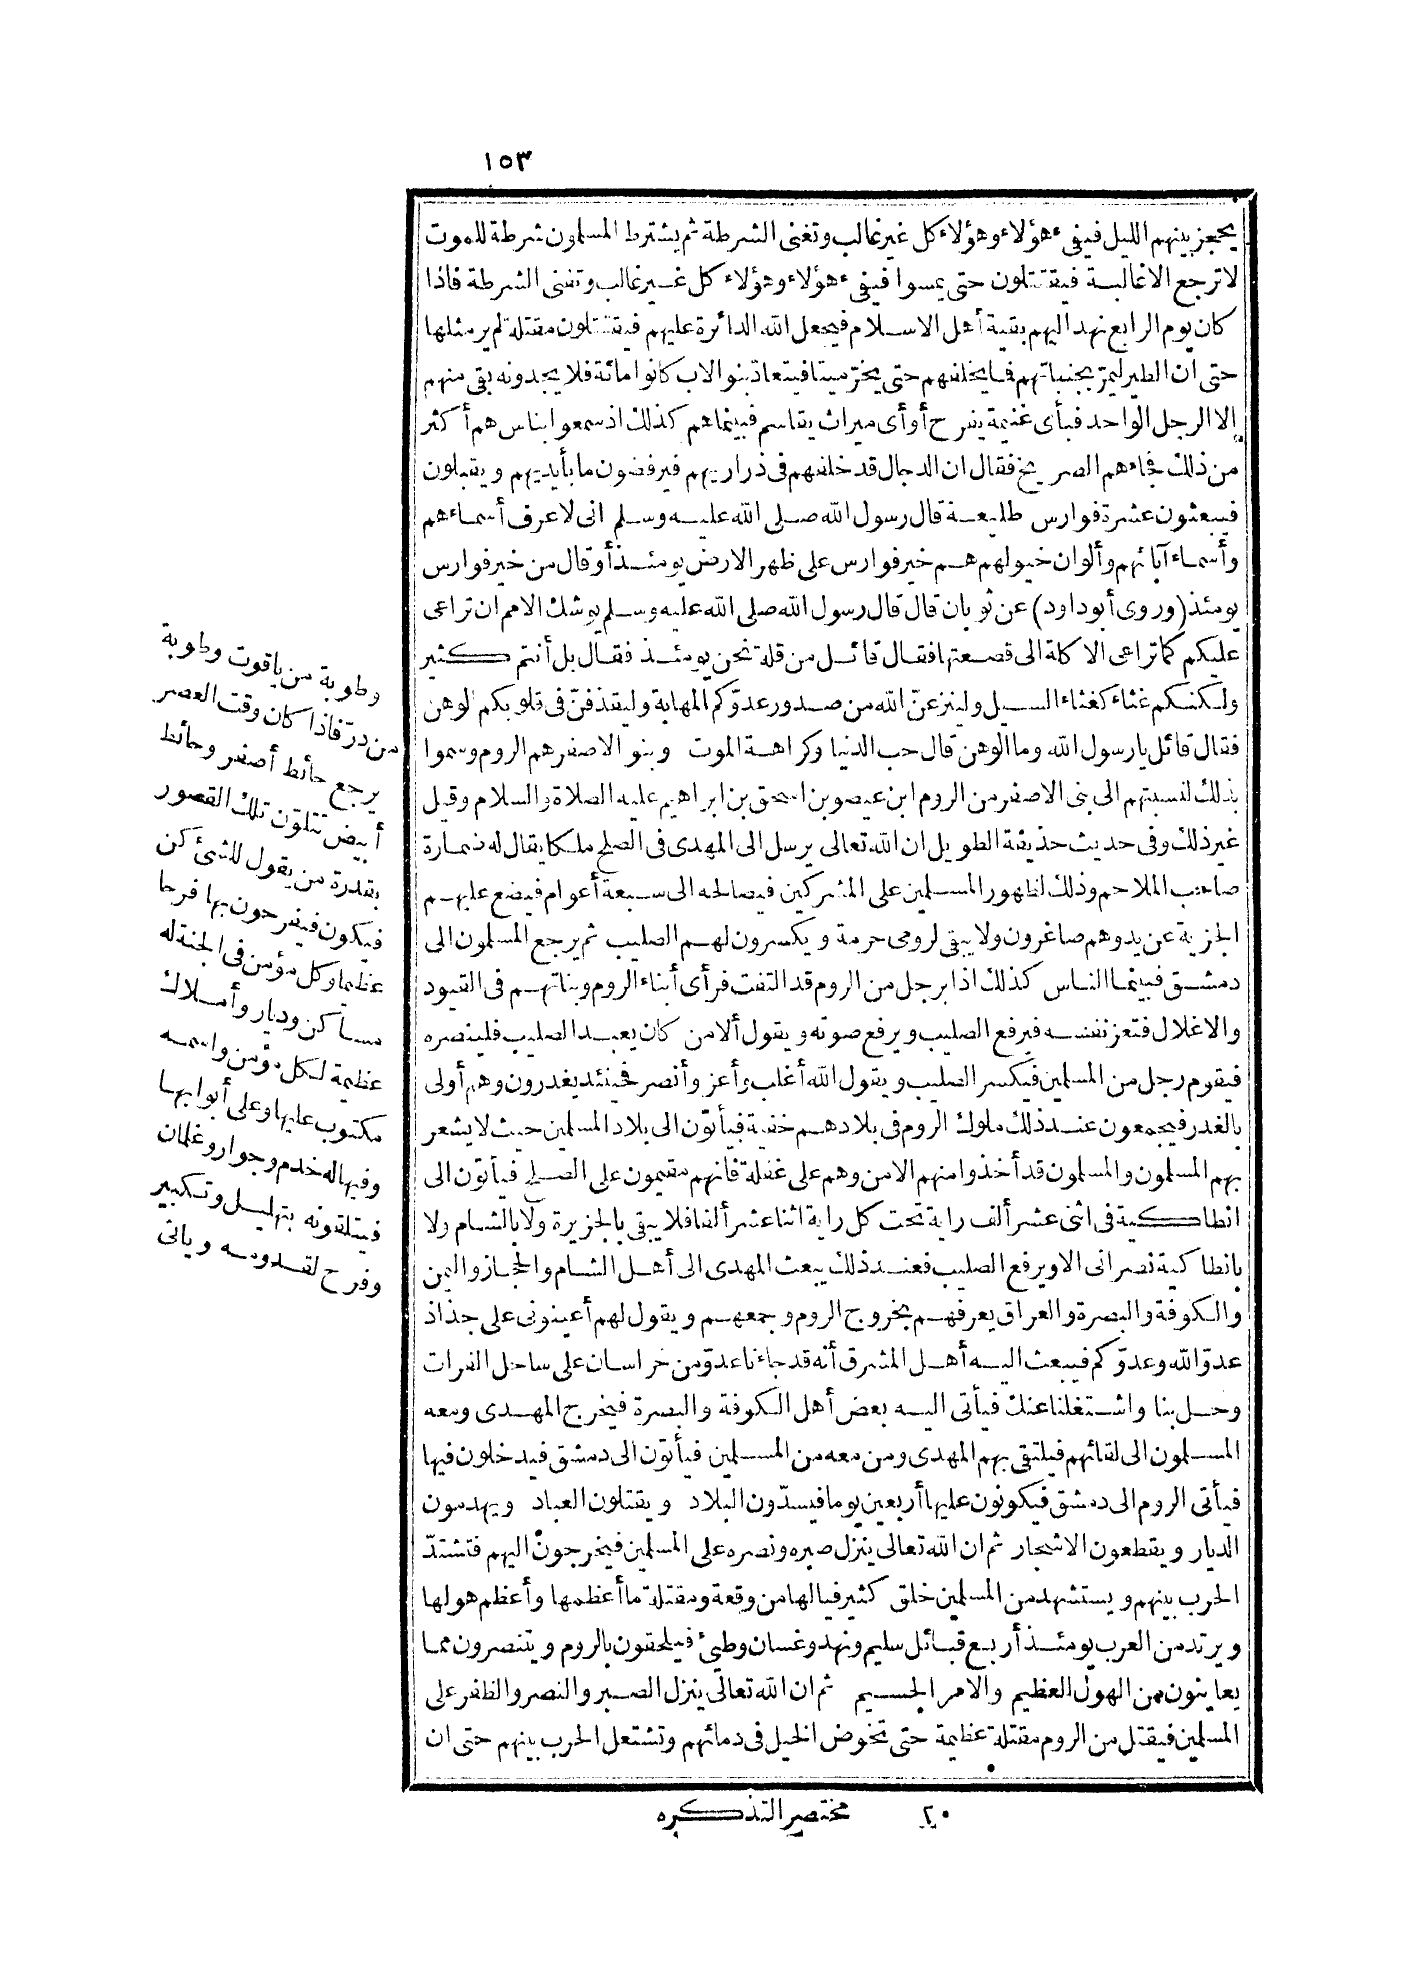 ١٥٣
يحجز بينهم الليل فيفىء هؤلاء وهؤلاء كل غير غالب وتغنى الشرطة ثم يشترط المسلمون شرطة للموت
لا ترجع الا غالبة فيقتتلون حتى يمسوا فيفىء هؤلاء وهؤلاء كل غير غالب وتفنى الشرطة فاذا
كان يوم الرابع نهد اليهم بقية أهل الاسلام فيجعل الله الدائرة عليهم فيقتتلون مقتلة لم ير مثلها
حتى ان الطير ليمر بجنباتهم فما يخلفهم حتى يخرّ ميتا فيتعاد بنو الاب كانوا مائة فلا يجدونه بقى منهم
إلا الرجل الواحد فبأى غنيمة يفرح أو أى ميراث يقاسم فبينما هم كذلك اذ سمعوا بناس هم أكثر
من ذلك فجاءهم الصريخ فقال ان الدجال قد خلفهم فى ذراريهم فيرفضون ما بأيديهم ويقبلون
فيبعثون عشرة فوارس طليعة قال رسول الله صلى الله عليه وسلم انى لاعرف أسماءهم
وأسماء آبائهم وألوان خيولهم هم خير فوارس على ظهر الارض يومئذ أو قال من خير فوارس
يومئذ (وروى أبو داود) عن ثوبان قال قال رسول الله صلى الله عليه وسلم يوشك الامم ان تراعى
عليكم كما تراعى الاكلة الى قصعتها فقال قائل من قلة نحن يومئذ فقال بل أنتم كثير
ولكنكم غثاء كغثاء السيل ولينزعنّ الله من صدور عدوّكم المهابة وليقذفنّ فى قلوبكم الوهن
فقال قائل يا رسول الله وما الوهن قال حب الدنيا وكراهة الموت وبنو الاصفر هم الروم وسموا
بذلك لنسبتهم الى بنى الاصفر من الروم ابن عيصو بن اسحق بن ابراهيم عليه الصلاة والسلام وقيل
غير ذلك وفى حديث حذيفة الطويل ان الله تعالى يرسل الى المهدى فى الصلح ملكا يقال له ضمارة
صاحب الملاحم وذلك لظهور المسلمين على المشركين فيصالحه الى سبعة أعوام فيضع عليهم
الجزية عن يد وهم صاغرون ولا يبقى لرومى حرمة ويكسرون لهم الصليب ثم يرجع المسلمون الى
دمشق فبينما الناس كذلك اذا برجل من الروم قد التفت فرأى أبناء الروم وبناتهم فى القيود
والاغلال فتعز نفسه فيرفع الصليب ويرفع صوته ويقول ألا من كان يعبد الصليب فلينصره
فيقوم رجل من المسلمين فيكسر الصليب ويقول الله أغلب وأعز وأنصر فحينئذ يغدرون وهم أولى
بالغدر فيجمعون عند ذلك ملوك الروم فى بلادهم خفية فيأتون الى بلاد المسلمين حيث لا يشعر
بهم المسلمون والمسلمون قد أخذوا منهم الامن وهم على غفلة فانهم مقيمون على الصلح فيأتون الى
انطاكية فى اثنى عشر ألف راية تحت كل راية اثنا عشر ألفا فلا يبقى بالجزيرة ولا بالشام ولا
بانطاكية نصرانى الا ويرفع الصليب فعند ذلك يبعث المهدى الى أهل الشام والحجاز واليمن
والكوفة والبصرة والعراق يعرفهم بخروج الروم وجمعهم ويقول لهم أعينونى على جذاذ
عدوّ الله وعدوّكم فيبعث اليه أهل المشرق أنه قد جاءنا عدوّ من خراسان على ساحل الفرات
وحل بنا واشتغلنا عنك فيأتى اليه بعض أهل الكوفة والبصرة فيخرج المهدى ومعه
المسلمون الى لقائهم فيلتقى بهم المهدى ومن معه من المسلمين فيأتون الى دمشق فيدخلون فيها
فيأتى الروم الى دمشق فيكونون عليها أربعين يوما فيسدّون البلاد ويقتلون العباد ويهدمون
الديار ويقطعون الاشجار ثم ان الله تعالى ينزل صبره ونصره على المسلمين فيخرجون اليهم فتشتدّ
الحرب بينهم ويستشهد من المسلمين خلق كثير فيالها من وقعة ومقتلة ما أعظمها وأعظم هولها
ويرتد من العرب يومئذ أربع قبائل سليم ونهد وغسان وطيئ فيلحقون بالروم ويتنصرون مما
يعاينون من الهول العظيم والامر الجسيم ثم ان الله تعالى ينزل الصبر والنصر والظفر على
المسلمين فيقتل من الروم مقتلة عظيمة حتى تخوض الخيل فى دمائهم وتشتعل الحرب بينهم حتى ان
وطوبة من ياقوت وطوبة
من درّ فاذا كان وقت العصر
يرجع حائط أصفر وحائط
أبيض تتلوّن تلك القصور
بقدرة من يقول للشئ كن
فيكون فيفرحون بها فرحا
عظيما وكل مؤمن فى الجنة له
مساكن وديار وأملاك
عظيمة لكل مؤمن واسمه
مكتوب عليها وعلى أبوابها
وفيها له خدم وجوار وغلمان
فيتلقونه بتهليل وتكبير
وفرح لقدومه ويأتى
٢٠ مختصر التذكره